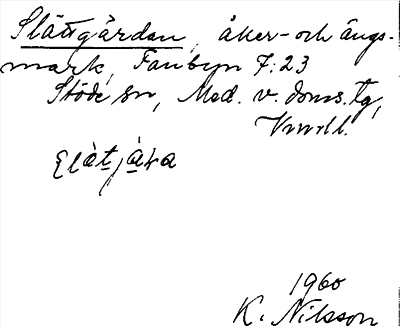 Slåttgårdan, åker- och ängs-
mark, Fanbyn 7:23
Stöde sn, Med. v. doms. tg,
Vnrrl.
1960
K. Nilsson